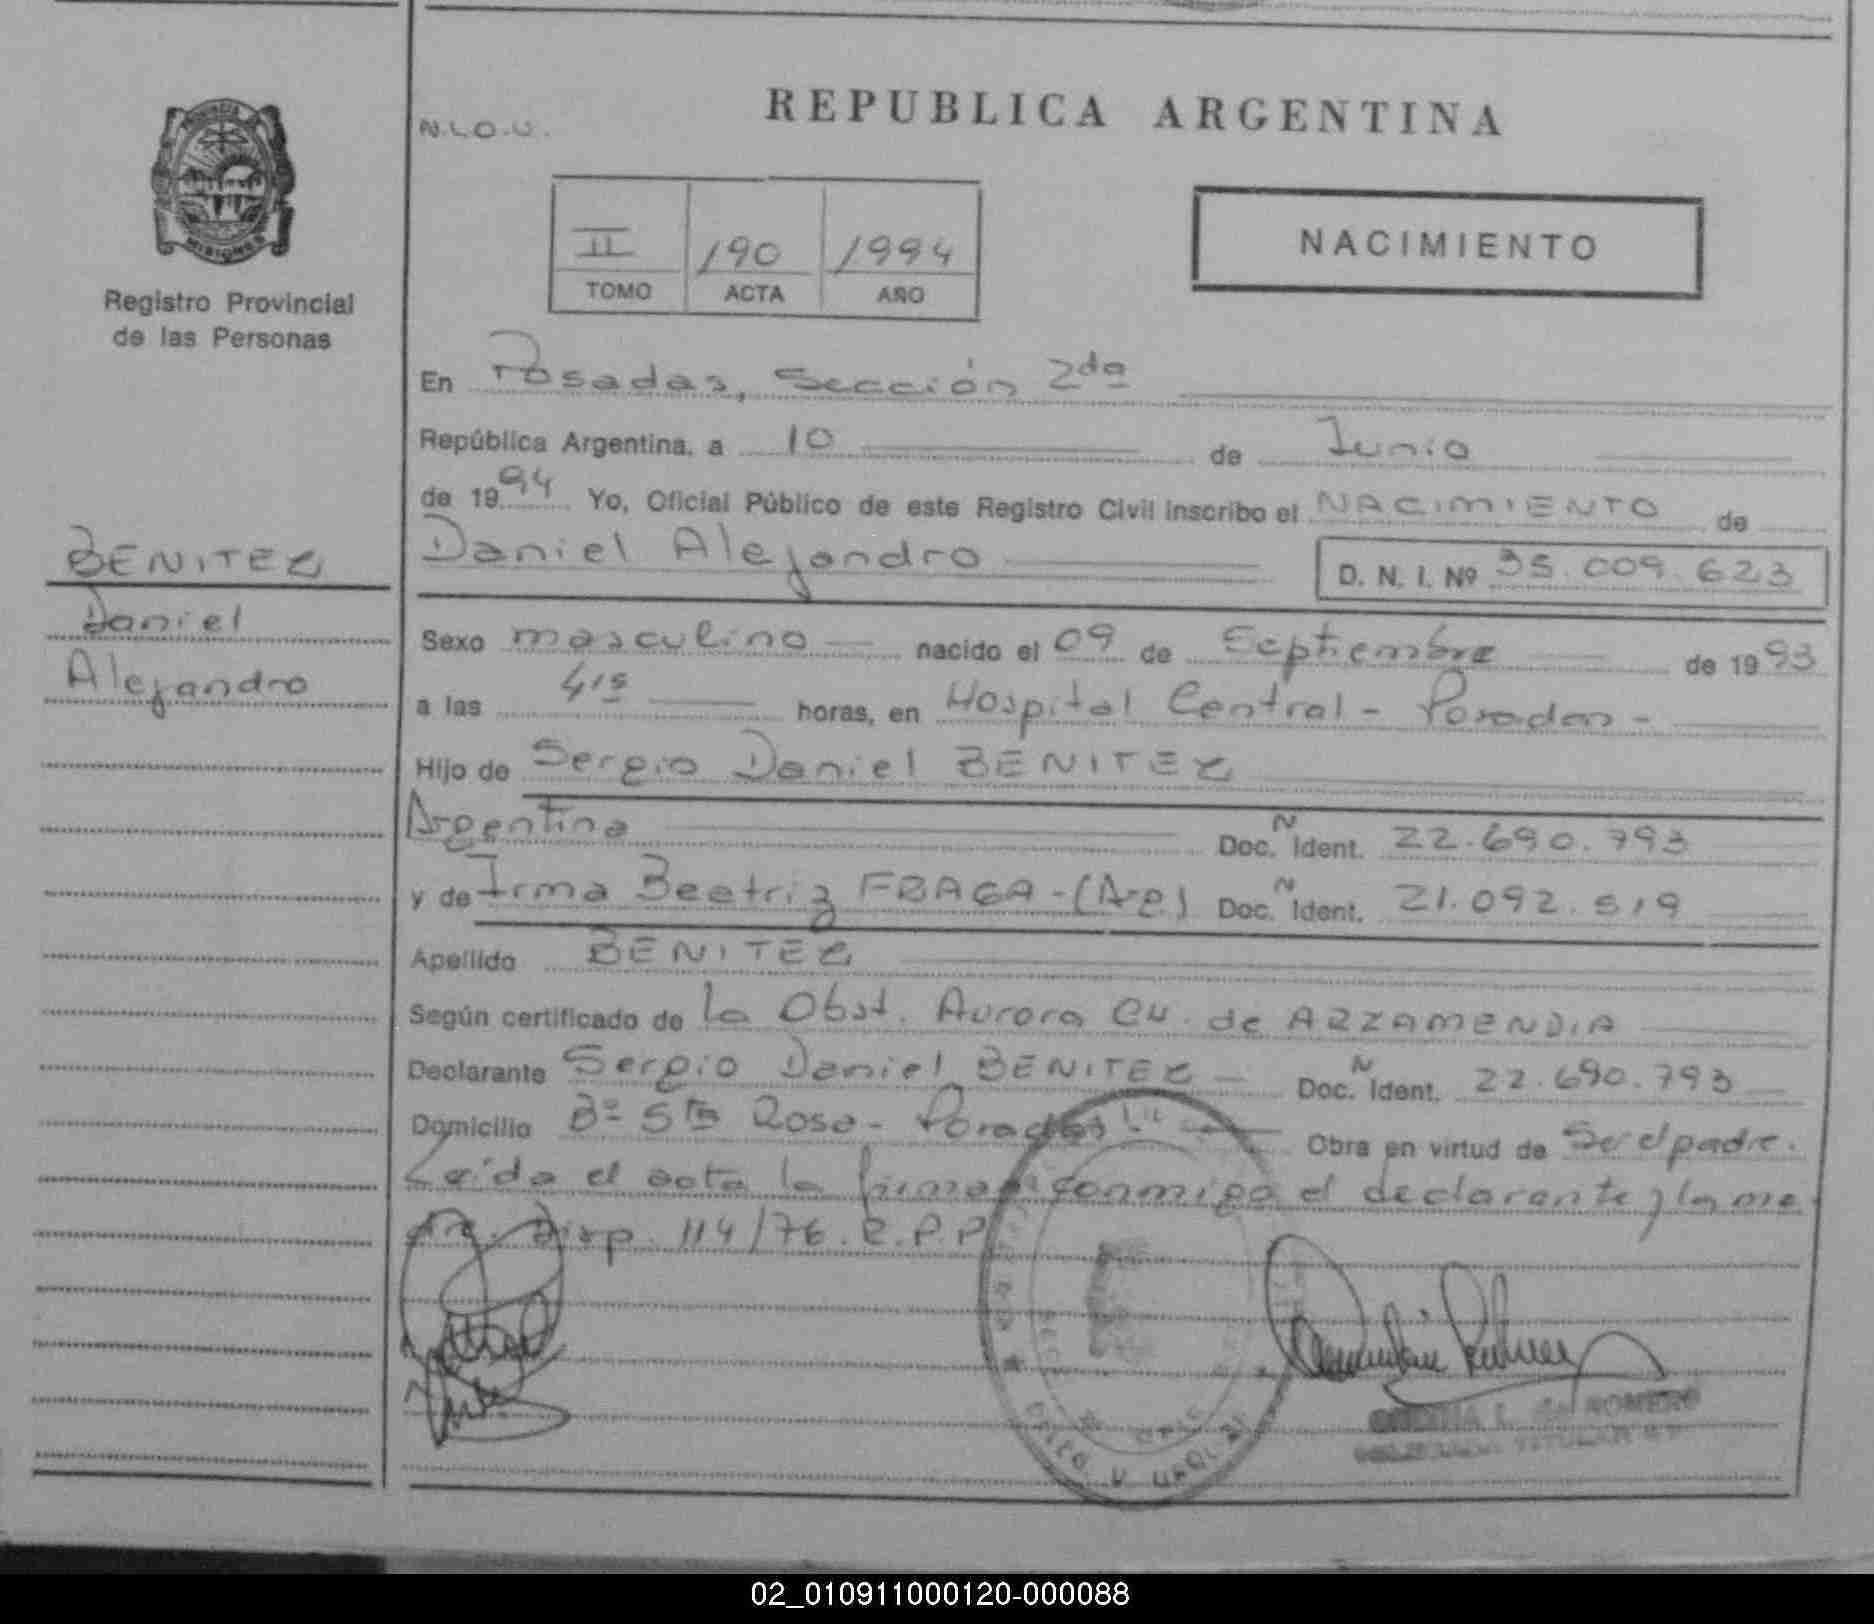 PROVINCIA
MISIONES
Registro Provincial
de las Personas
BENITEZ
Daniel
Alejandro
N.L.O.U.
REPUBLICA ARGENTINA
II 190 1994
TOMO ACTA AÑO
NACIMIENTO
En Posadas, Sección 2da
República Argentina, a 10 de Junio
de 1994 Yo, Oficial Público de este Registro Civil inscribo el NACIMIENTO de
Daniel Alejandro D. N. I. Nº 35.009.623
Sexo masculino nacido el 09 de Septiembre de 1993
a las 4 15 horas, en Hospital Central - Posadas -
Hijo de Sergio Daniel BENITEZ
Argentina Doc. N Ident. 22.690.793
y de Irma Beatriz FRAGA - (Arg.) Doc. N Ident. 21.092.519
Apellido BENITEZ
Según certificado de la Obst. Aurora Cu. de ARZAMENDIA
Declarante Sergio Daniel BENITEZ Doc. N Ident. 22.690.793
Domicilio Bº Sta Rosa - Posadas Obra en virtud de Ser el padre.
Leída el acta la firman conmigo el declarante y la ma
dre. Disp. 114/76. R.P.P.
ROMERO
TITULAR
02_010911000120-000088